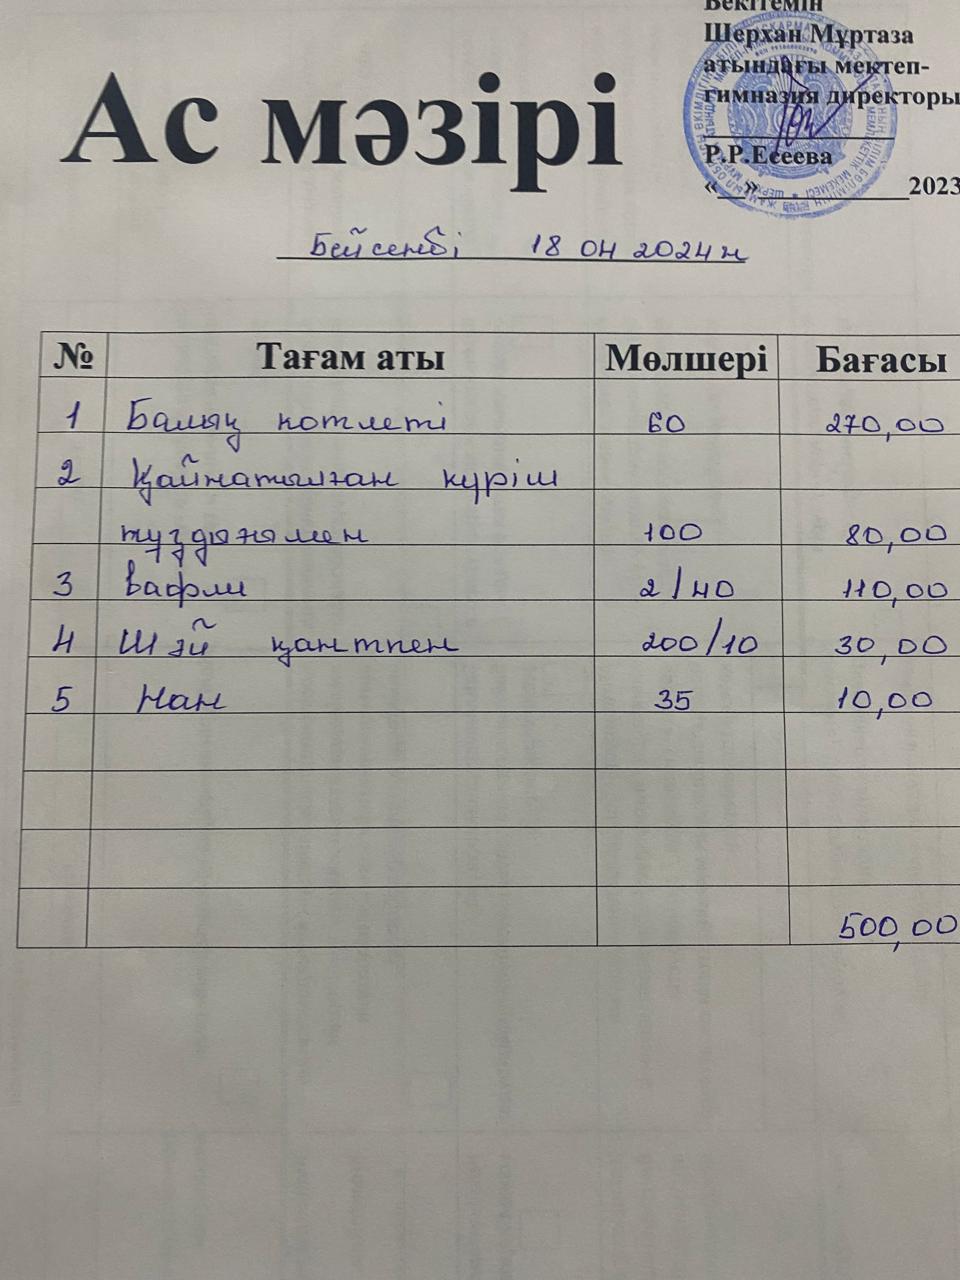 Бекітемін
Шерхан Мұртаза
атындағы мектеп-
гимназия директоры
Р.Р.Есеева
«__»____________2023
Ас мәзірі
Бейсенбі 18 04 2024ж
№ Тағам аты Мөлшері Бағасы
1 Балық котлеті 60 270,00
2 Қайнатылған күріш
тұздықпен 100 80,00
3 Вафли 2/40 110,00
4 Шәй қантпен 200/10 30,00
5 Нан 35 10,00
500,00